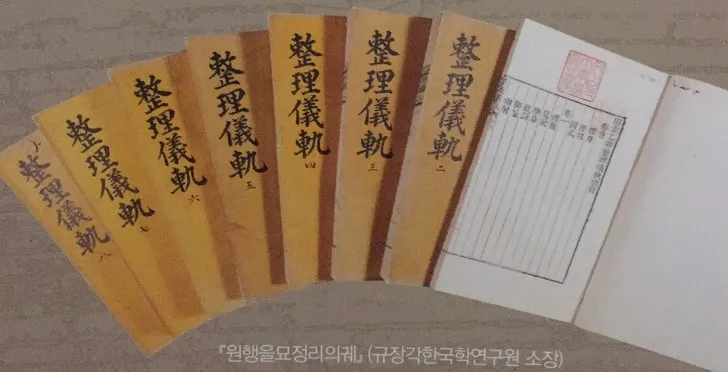 整理儀軌 八
整理儀軌 七
整理儀軌 六
整理儀軌 五
整理儀軌 四
整理儀軌 三
整理儀軌 二
『원행을묘정리의궤』 (규장각한국학연구원 소장)